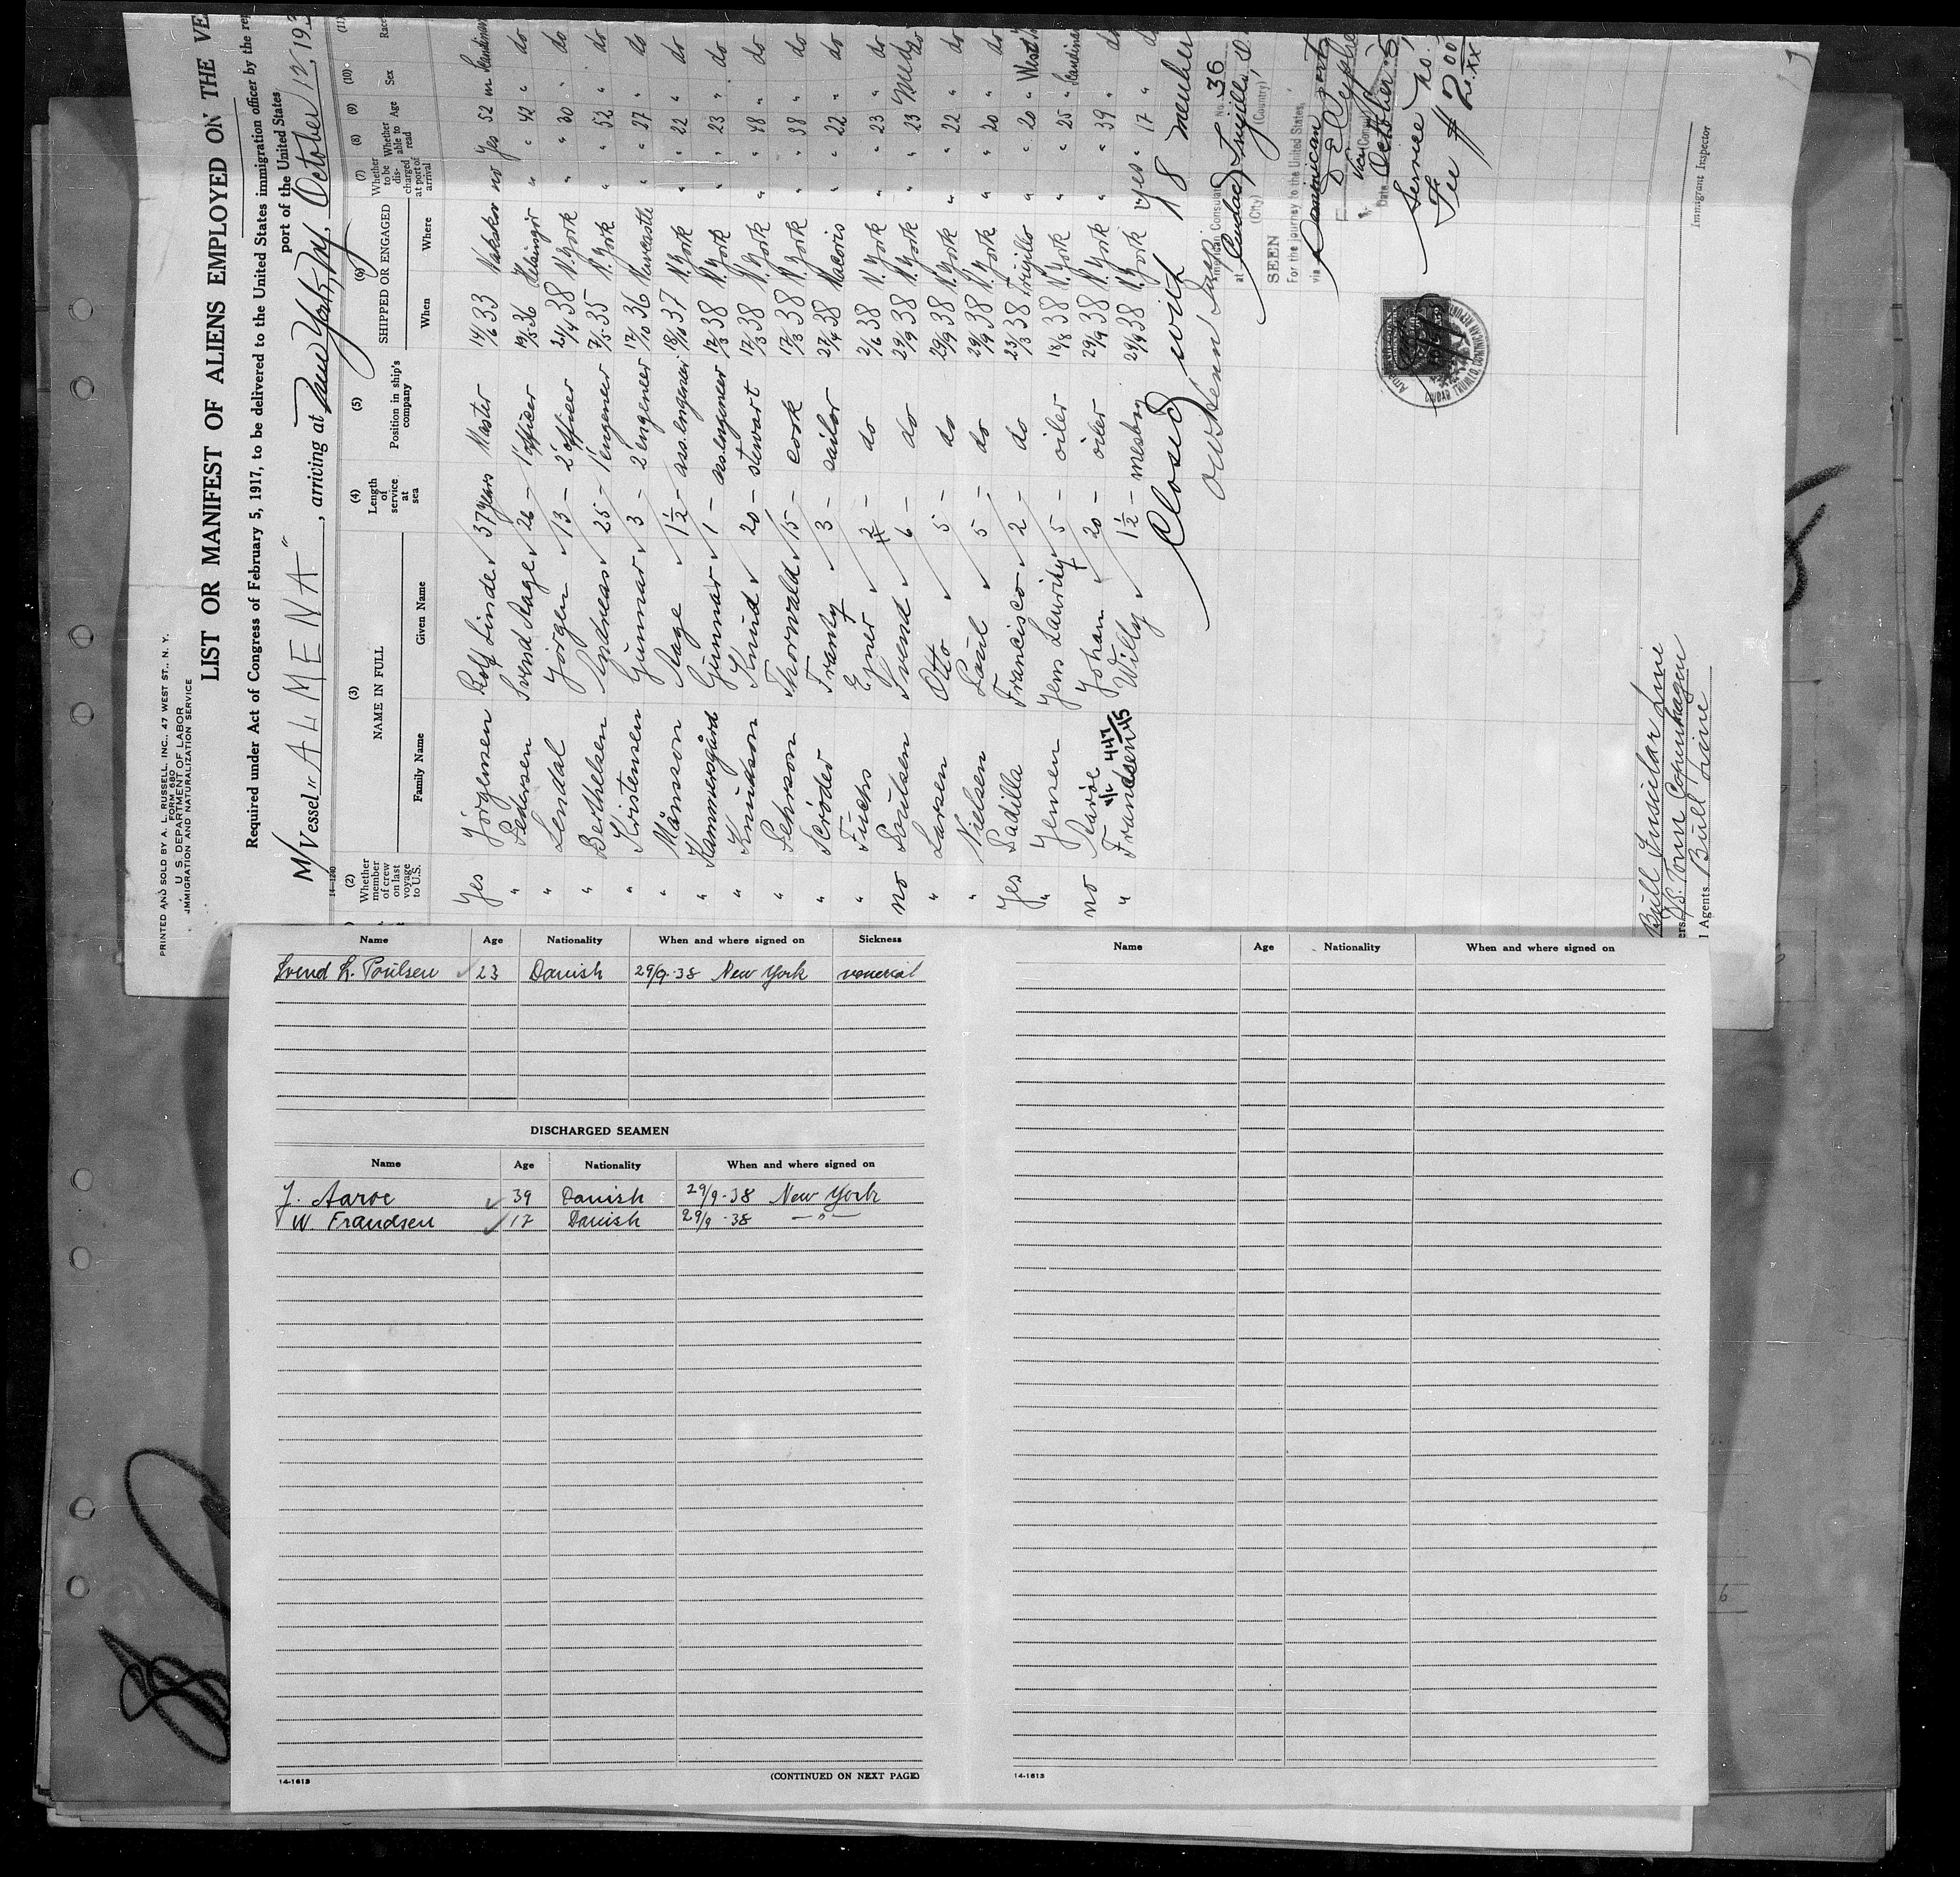 PRINTED AND SOLD BY A. L. RUSSELL, INC., 47 WEST ST., N. Y.
FORM 680
U. S. DEPARTMENT OF LABOR
IMMIGRATION AND NATURALIZATION SERVICE
LIST OR MANIFEST OF ALIENS EMPLOYED ON THE VE
Required under Act of Congress of February 5, 1917, to be delivered to the United States immigration officer by the rep
port of the United States
M/Vessel "ALMENA", arriving at New York, Ny, October 12, 193
14-1240
(2) (3) (4) (5) (6) (7) (8) (9) (10) (11)
Whether member of crew on last voyage to U.S. NAME IN FULL Length of service at sea Position in ship's company SHIPPED OR ENGAGED Whether to be discharged at port of arrival Whether able to read Age Sex Race
Family Name Given Name When Where
Yes Jörgensen Rolf Linde 37 years Master 14/6 33 Nakskov no Yes 52 m Scandinav
" Pedersen Svend Aage 26 - 1' officer 19/5 36 Helsingör " " 42 " do
" Lendal Jörgen 13 - 2' officer 21/4 38 N. York " " 30 " do
" Berthelsen Andreas 25 - 1' engeneer 7/5 35 N. York " " 52 " do
" Kristensen Gunnar 3 - 2' engeneer 17/10 36 Newcastle " " 27 " do
" Månsson Aage 1½ - ass. engeneer 18/10 37 N. York " " 22 " do
" Kammersgård Gunnar 1 - ass. engeneer 17/3 38 N. York " " 23 " do
" Knudson Knud 20 - stewart 17/3 38 N. York " " 48 " do
" Pehrson Thorwald 15 - cook 17/3 38 N. York " " 38 " do
" Scröder Frantz 3 - sailor 27/4 38 Macoris " " 22 " do
" Fuchs Ejner 2 - do 2/6 38 N. York " " 23 " do
no Poulsen Svend 6 - do 29/9 38 N. York " " 23 " do
" Larsen Otto 5 - do 29/9 38 N. York " " 22 " do
" Nielsen Paul 5 - do 29/9 38 N. York " " 20 " do
Yes Padilla Francisco 2 - do 23/3 38 Trujillo " " 20 " West
" Jensen Jens Lauridz 5 - oiler 18/8 38 N. York " " 25 " Scandina
no Aaröe Johan 20 - oiler 29/9 38 N. York " " 39 " do
" Frandsen Willy 1½ - messboy 29/9 38 N. York Yes " 17 " do
Closed with 18 member
American Consulate No. 36
at Ciudad Trujillo, D.
(City) (Country)
SEEN
For the journey to the United States,
via Dominican ports
Date October 5,
Service No.
Fee $2.00
Bull Insular Line
Copenhagen
Agents Bull Line
Immigrant Inspector
Name Age Nationality When and where signed on Sickness
Svend L. Poulsen 23 Danish 29/9-38 New York venerial
DISCHARGED SEAMEN
Name Age Nationality When and where signed on
J. Aaroe 39 Danish 29/9-38 New York
W. Frandsen 17 Danish 29/9-38 —"—
14-1613
(CONTINUED ON NEXT PAGE)
Name Age Nationality When and where signed on
14-1613